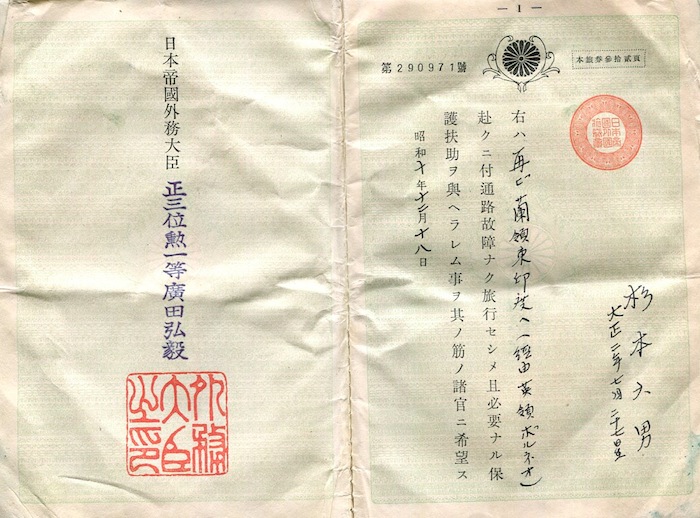 — 1 —
第290971號
本旅券參拾貳頁
杉本 男
大正二年七月
右ハ再ビ蘭領東印度へ(經由英領ボルネオ)
赴クニ付通路故障ナク旅行セシメ且必要ナル保
護扶助ヲ與ヘラレム事ヲ其ノ筋ノ諸官ニ希望ス
昭和十年十二月十八日
日本帝國外務大臣 正三位勲一等廣田弘毅
外務大臣之印